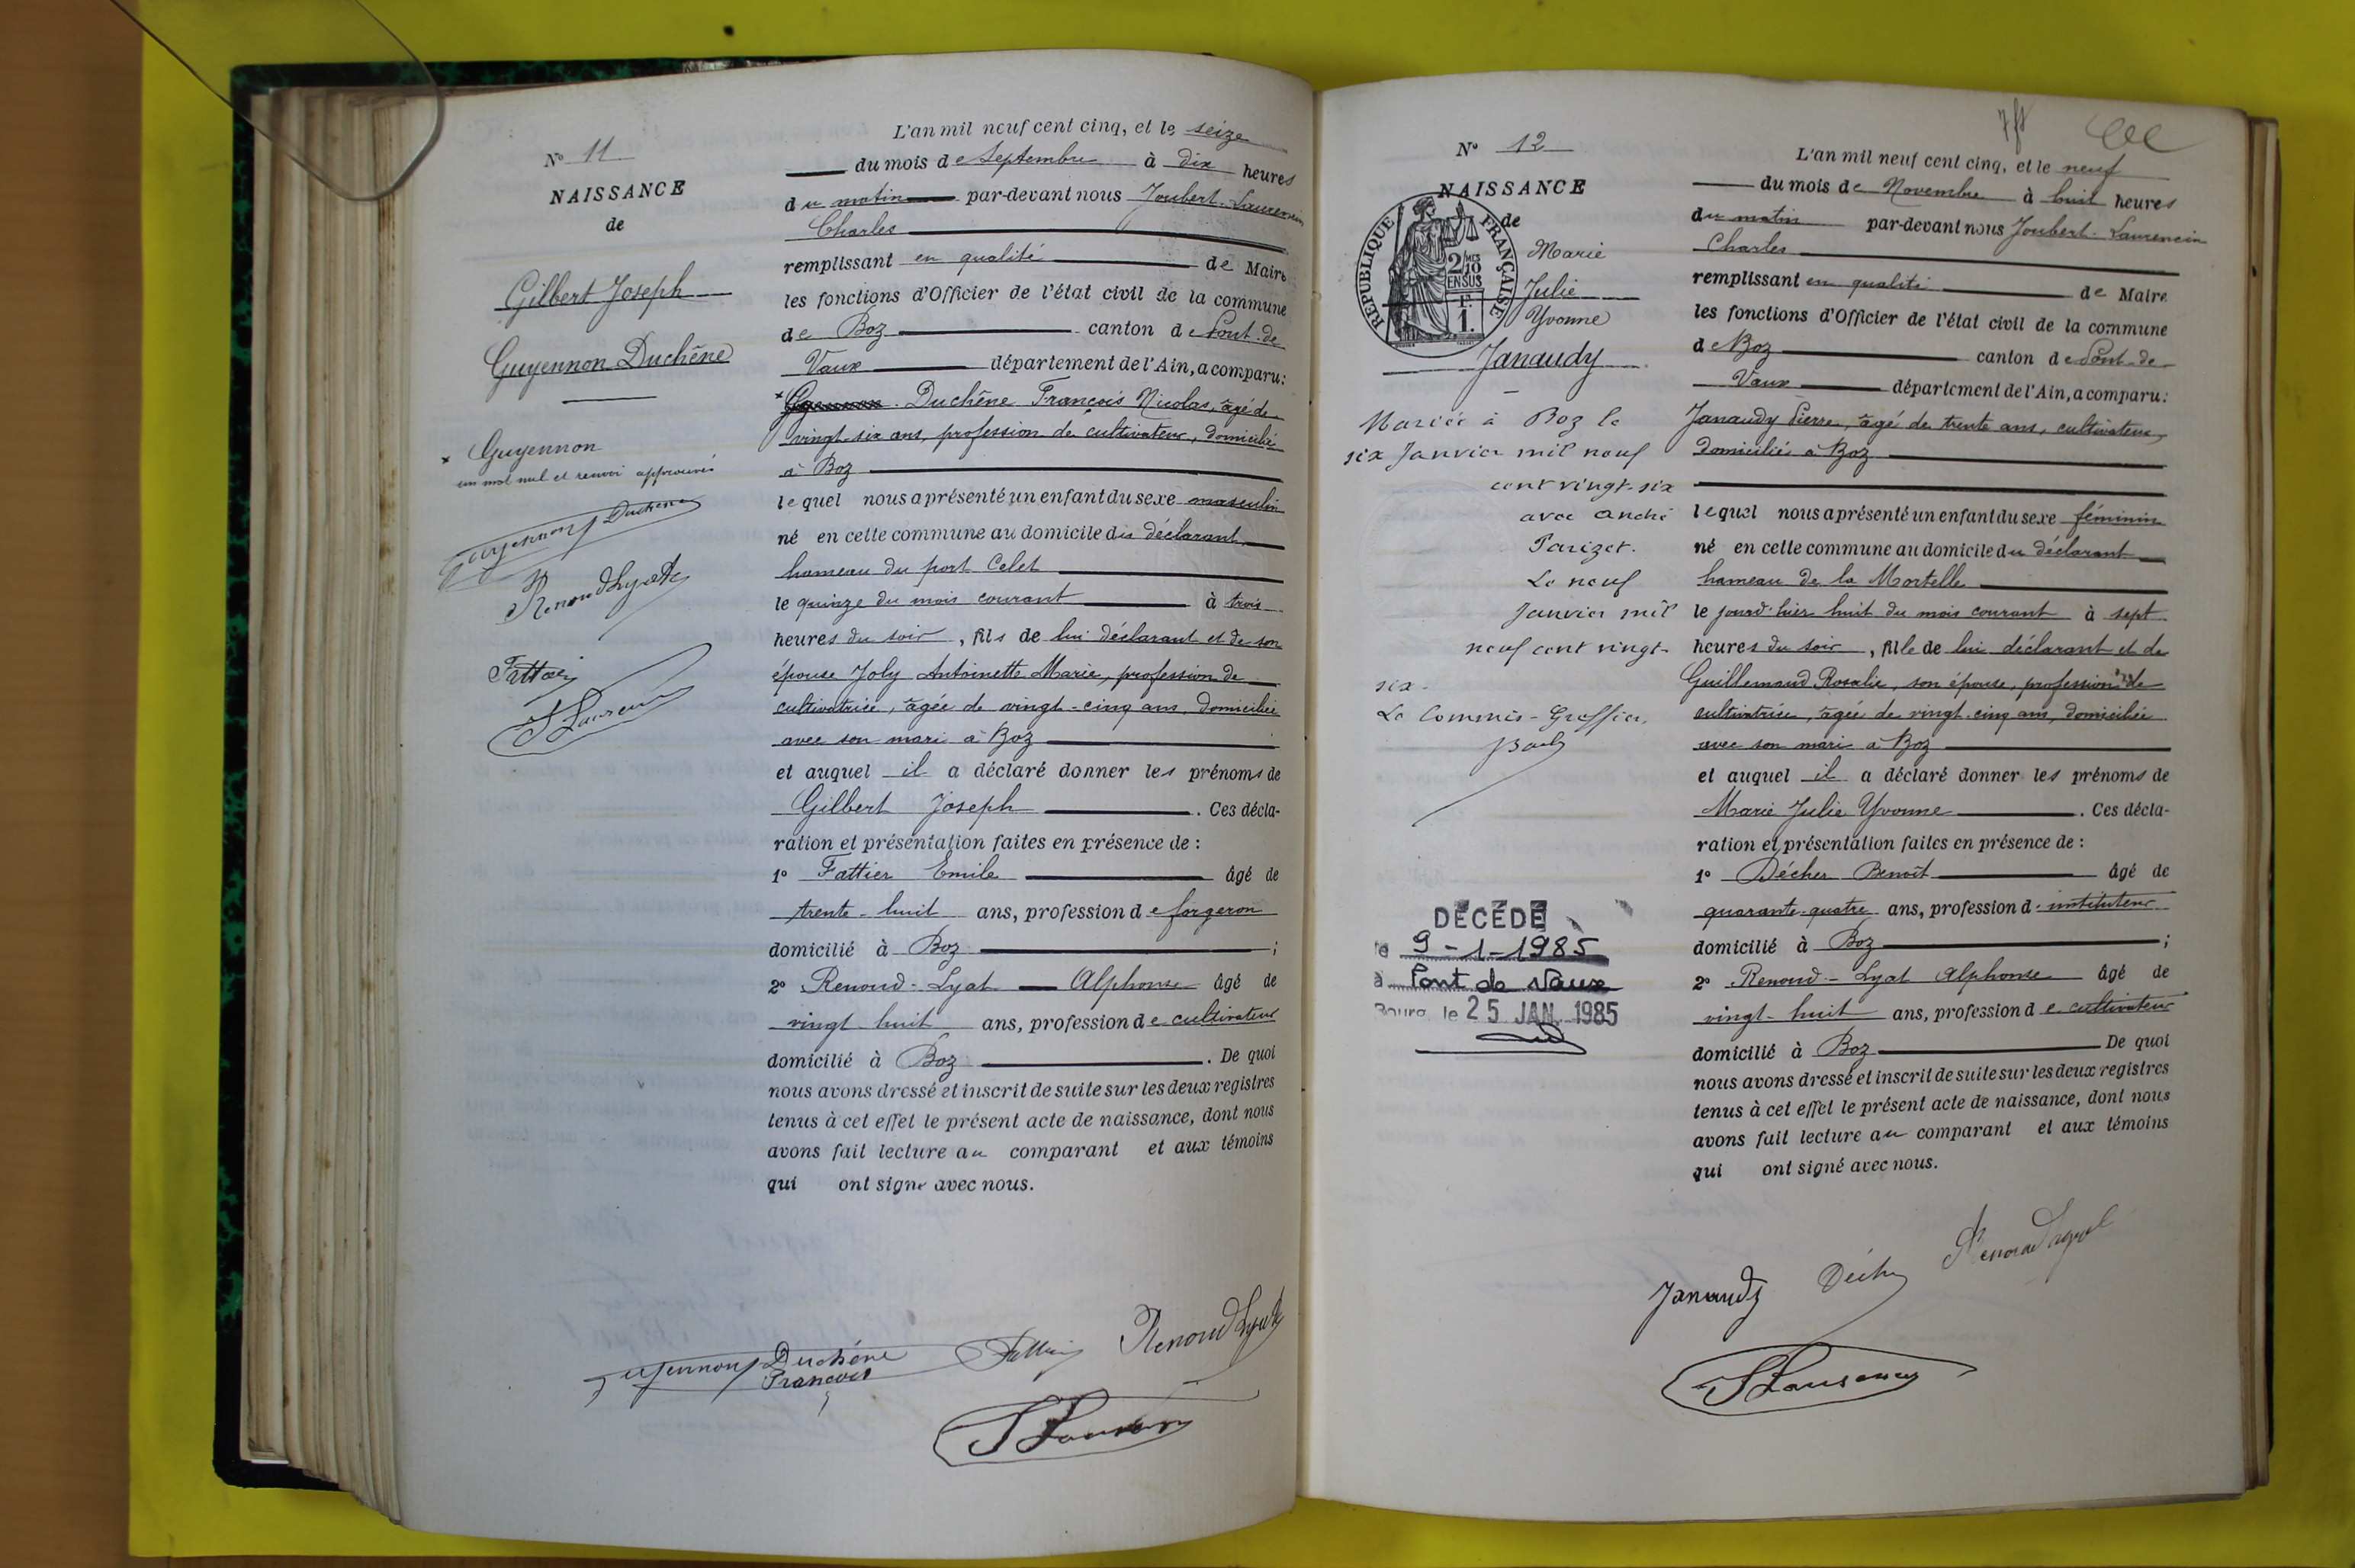 N° 11
NAISSANCE
de
Gilbert Joseph
Guyennon Duchêne
x Guyennon
un mot nul et renvoi approuvés
Guyennon Duchêne
Renoud Lyat
Fattier
L'an mil neuf cent cinq, et le seize
du mois de Septembre à dix heures
du matin par-devant nous Joubert-Laurencin
Charles
remplissant en qualité de Maire
les fonctions d'Officier de l'état civil de la commune
de Boz canton de Pont-de-
Vaux département de l'Ain, a comparu:
x Duchêne François Nicolas, âgé de
vingt-six ans, profession de cultivateur, domicilié
à Boz
lequel nous a présenté un enfant du sexe masculin
né en cette commune au domicile du déclarant
hameau du port Celet
le quinze du mois courant à trois
heures du soir, fils de lui déclarant et de son
épouse Joly Antoinette Marie, profession de
cultivatrice, âgée de vingt-cinq ans, domiciliée
avec son mari à Boz
et auquel il a déclaré donner les prénoms de
Gilbert Joseph. Ces décla-
ration et présentation faites en présence de :
1° Fattier Emile âgé de
trente-huit ans, profession de forgeron
domicilié à Boz ;
2° Renoud-Lyat Alphonse âgé de
vingt huit ans, profession de cultivateur
domicilié à Boz. De quoi
nous avons dressé et inscrit de suite sur les deux registres
tenus à cet effet le présent acte de naissance, dont nous
avons fait lecture au comparant et aux témoins
qui ont signé avec nous.
Guyennon Duchêne
François
Fattier
Renoud Lyat
N° 12
NAISSANCE
de
RÉPUBLIQUE FRANÇAISE
2/10 EN SUS
F.
1.
Marie
Julie
Yvonne
Janaudy
Mariée à Boz le
six Janvier mil neuf
cent vingt-six
avec André
Parizet.
Le neuf
Janvier mil
neuf cent vingt-
six.
Le Commis-Greffier,
DÉCÉDÉ
le 9-1-1985
à Pont de Vaux
Bourg, le 25 JAN. 1985
L'an mil neuf cent cinq, et le neuf
du mois de Novembre à huit heures
du matin par-devant nous Joubert-Laurencin
Charles
remplissant en qualité de Maire
les fonctions d'Officier de l'état civil de la commune
de Boz canton de Pont-de-
Vaux département de l'Ain, a comparu:
Janaudy Pierre, âgé de trente ans, cultivateur,
domicilié à Boz
lequel nous a présenté un enfant du sexe féminin
né en cette commune au domicile du déclarant
hameau de la Mortelle
le jourd'hier huit du mois courant à sept
heures du soir, fille de lui déclarant et de
Guillemaud Rosalie, son épouse, profession de
cultivatrice, âgée de vingt-cinq ans, domiciliée
avec son mari à Boz
et auquel il a déclaré donner les prénoms de
Marie Julie Yvonne. Ces décla-
ration et présentation faites en présence de :
1° Décher Benoît âgé de
quarante-quatre ans, profession d'instituteur
domicilié à Boz ;
2° Renoud-Lyat Alphonse âgé de
vingt-huit ans, profession de cultivateur
domicilié à Boz De quoi
nous avons dressé et inscrit de suite sur les deux registres
tenus à cet effet le présent acte de naissance, dont nous
avons fait lecture au comparant et aux témoins
qui ont signé avec nous.
Janaudy